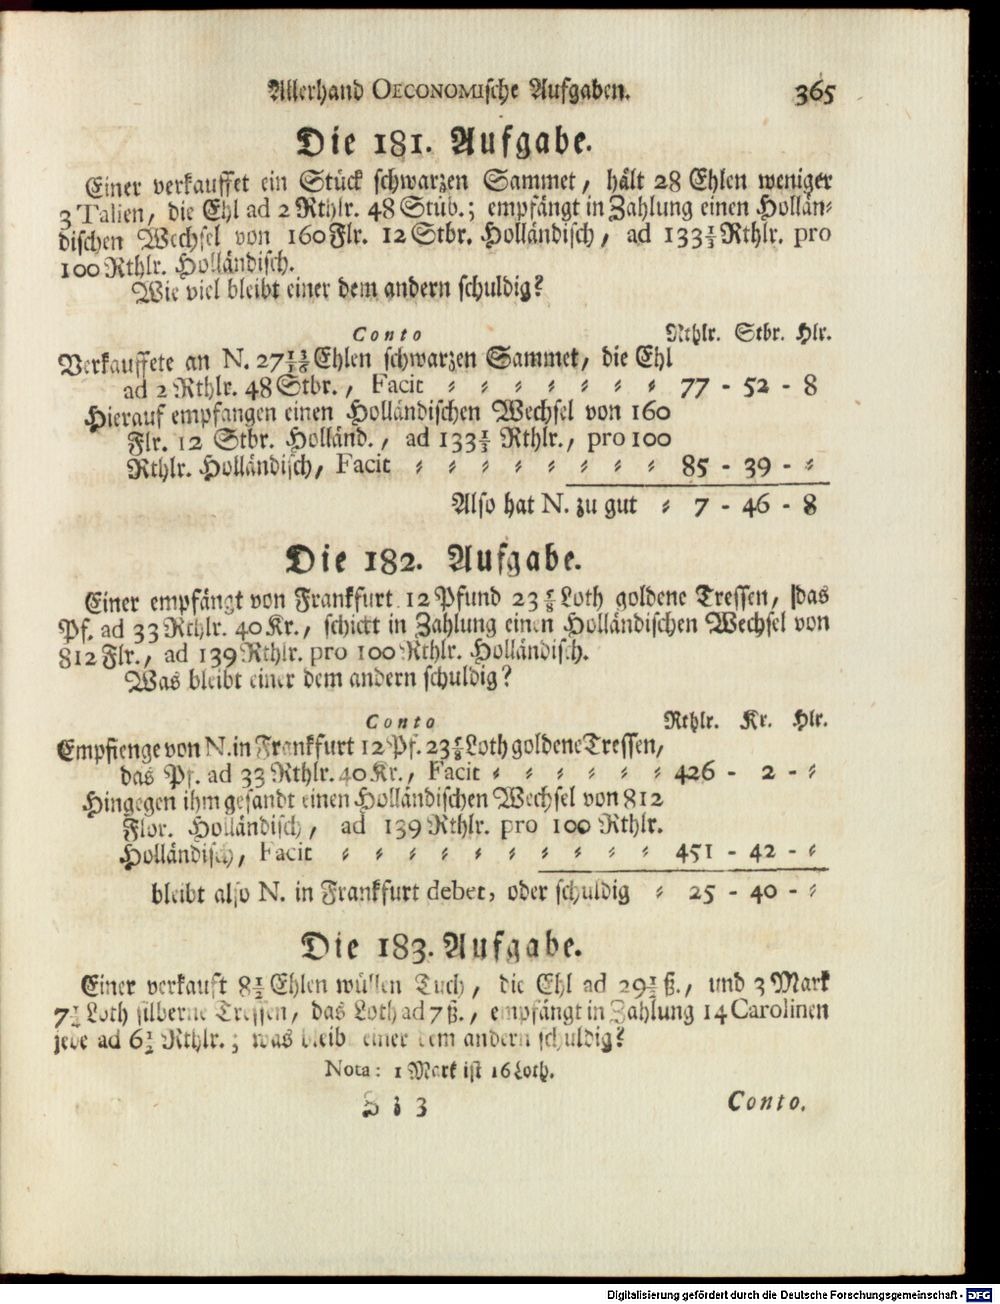 Allerhand OECONOMIsche Aufgaben. 365
Die 181. Aufgabe.
Einer verkauffet ein Stück schwarzen Sammet, hält 28 Ehlen weniger
3 Talien, die Ehl ad 2 Rthlr. 48 Stüb.; empfängt in Zahlung einen Hollän⸗
dischen Wechsel von 160 Flr. 12 Stbr. Holländisch, ad 133⅓ Rthlr. pro
100 Rthlr. Holländisch.
Wie viel bleibt einer dem andern schuldig?
Conto Rthlr. Stbr. Hlr.
Verkauffete an N. 27 13/16 Ehlen schwarzen Sammet, die Ehl
ad 2 Rthlr. 48 Stbr., Facit ⸗ ⸗ ⸗ ⸗ ⸗ ⸗ ⸗ 77 - 52 - 8
Hierauf empfangen einen Holländischen Wechsel von 160
Flr. 12 Stbr. Holländ., ad 133⅓ Rthlr., pro 100
Rthlr. Holländisch, Facit ⸗ ⸗ ⸗ ⸗ ⸗ ⸗ ⸗ ⸗ 85 - 39 - ⸗
Also hat N. zu gut ⸗ 7 - 46 - 8
Die 182. Aufgabe.
Einer empfängt von Frankfurt 12 Pfund 23⅝ Loth goldene Tressen, das
Pf. ad 33 Rthlr. 40 Kr., schickt in Zahlung einen Holländischen Wechsel von
812 Flr., ad 139 Rthlr. pro 100 Rthlr. Holländisch.
Was bleibt einer dem andern schuldig?
Conto Rthlr. Kr. Hlr.
Empfienge von N. in Frankfurt 12 Pf. 23⅝ Loth goldene Tressen,
das Pf. ad 33 Rthlr. 40 Kr., Facit ⸗ ⸗ ⸗ ⸗ ⸗ ⸗ 426 - 2 - ⸗
Hingegen ihm gesandt einen Holländischen Wechsel von 812
Flor. Holländisch, ad 139 Rthlr. pro 100 Rthlr.
Holländisch, Facit ⸗ ⸗ ⸗ ⸗ ⸗ ⸗ ⸗ ⸗ ⸗ ⸗ 451 - 42 - ⸗
bleibt also N. in Frankfurt debet, oder schuldig ⸗ 25 - 40 - ⸗
Die 183. Aufgabe.
Einer verkauft 8½ Ehlen wüllen Tuch, die Ehl ad 29½ ß., und 3 Mark
7½ Loth silberne Tressen, das Loth ad 7 ß., empfängt in Zahlung 14 Carolinen
jede ad 6½ Rthlr.; was bleibt einer dem andern schuldig?
Nota: 1 Mark ist 16 Loth.
3 Conto.
Digitalisierung gefördert durch die Deutsche Forschungsgemeinschaft - DFG